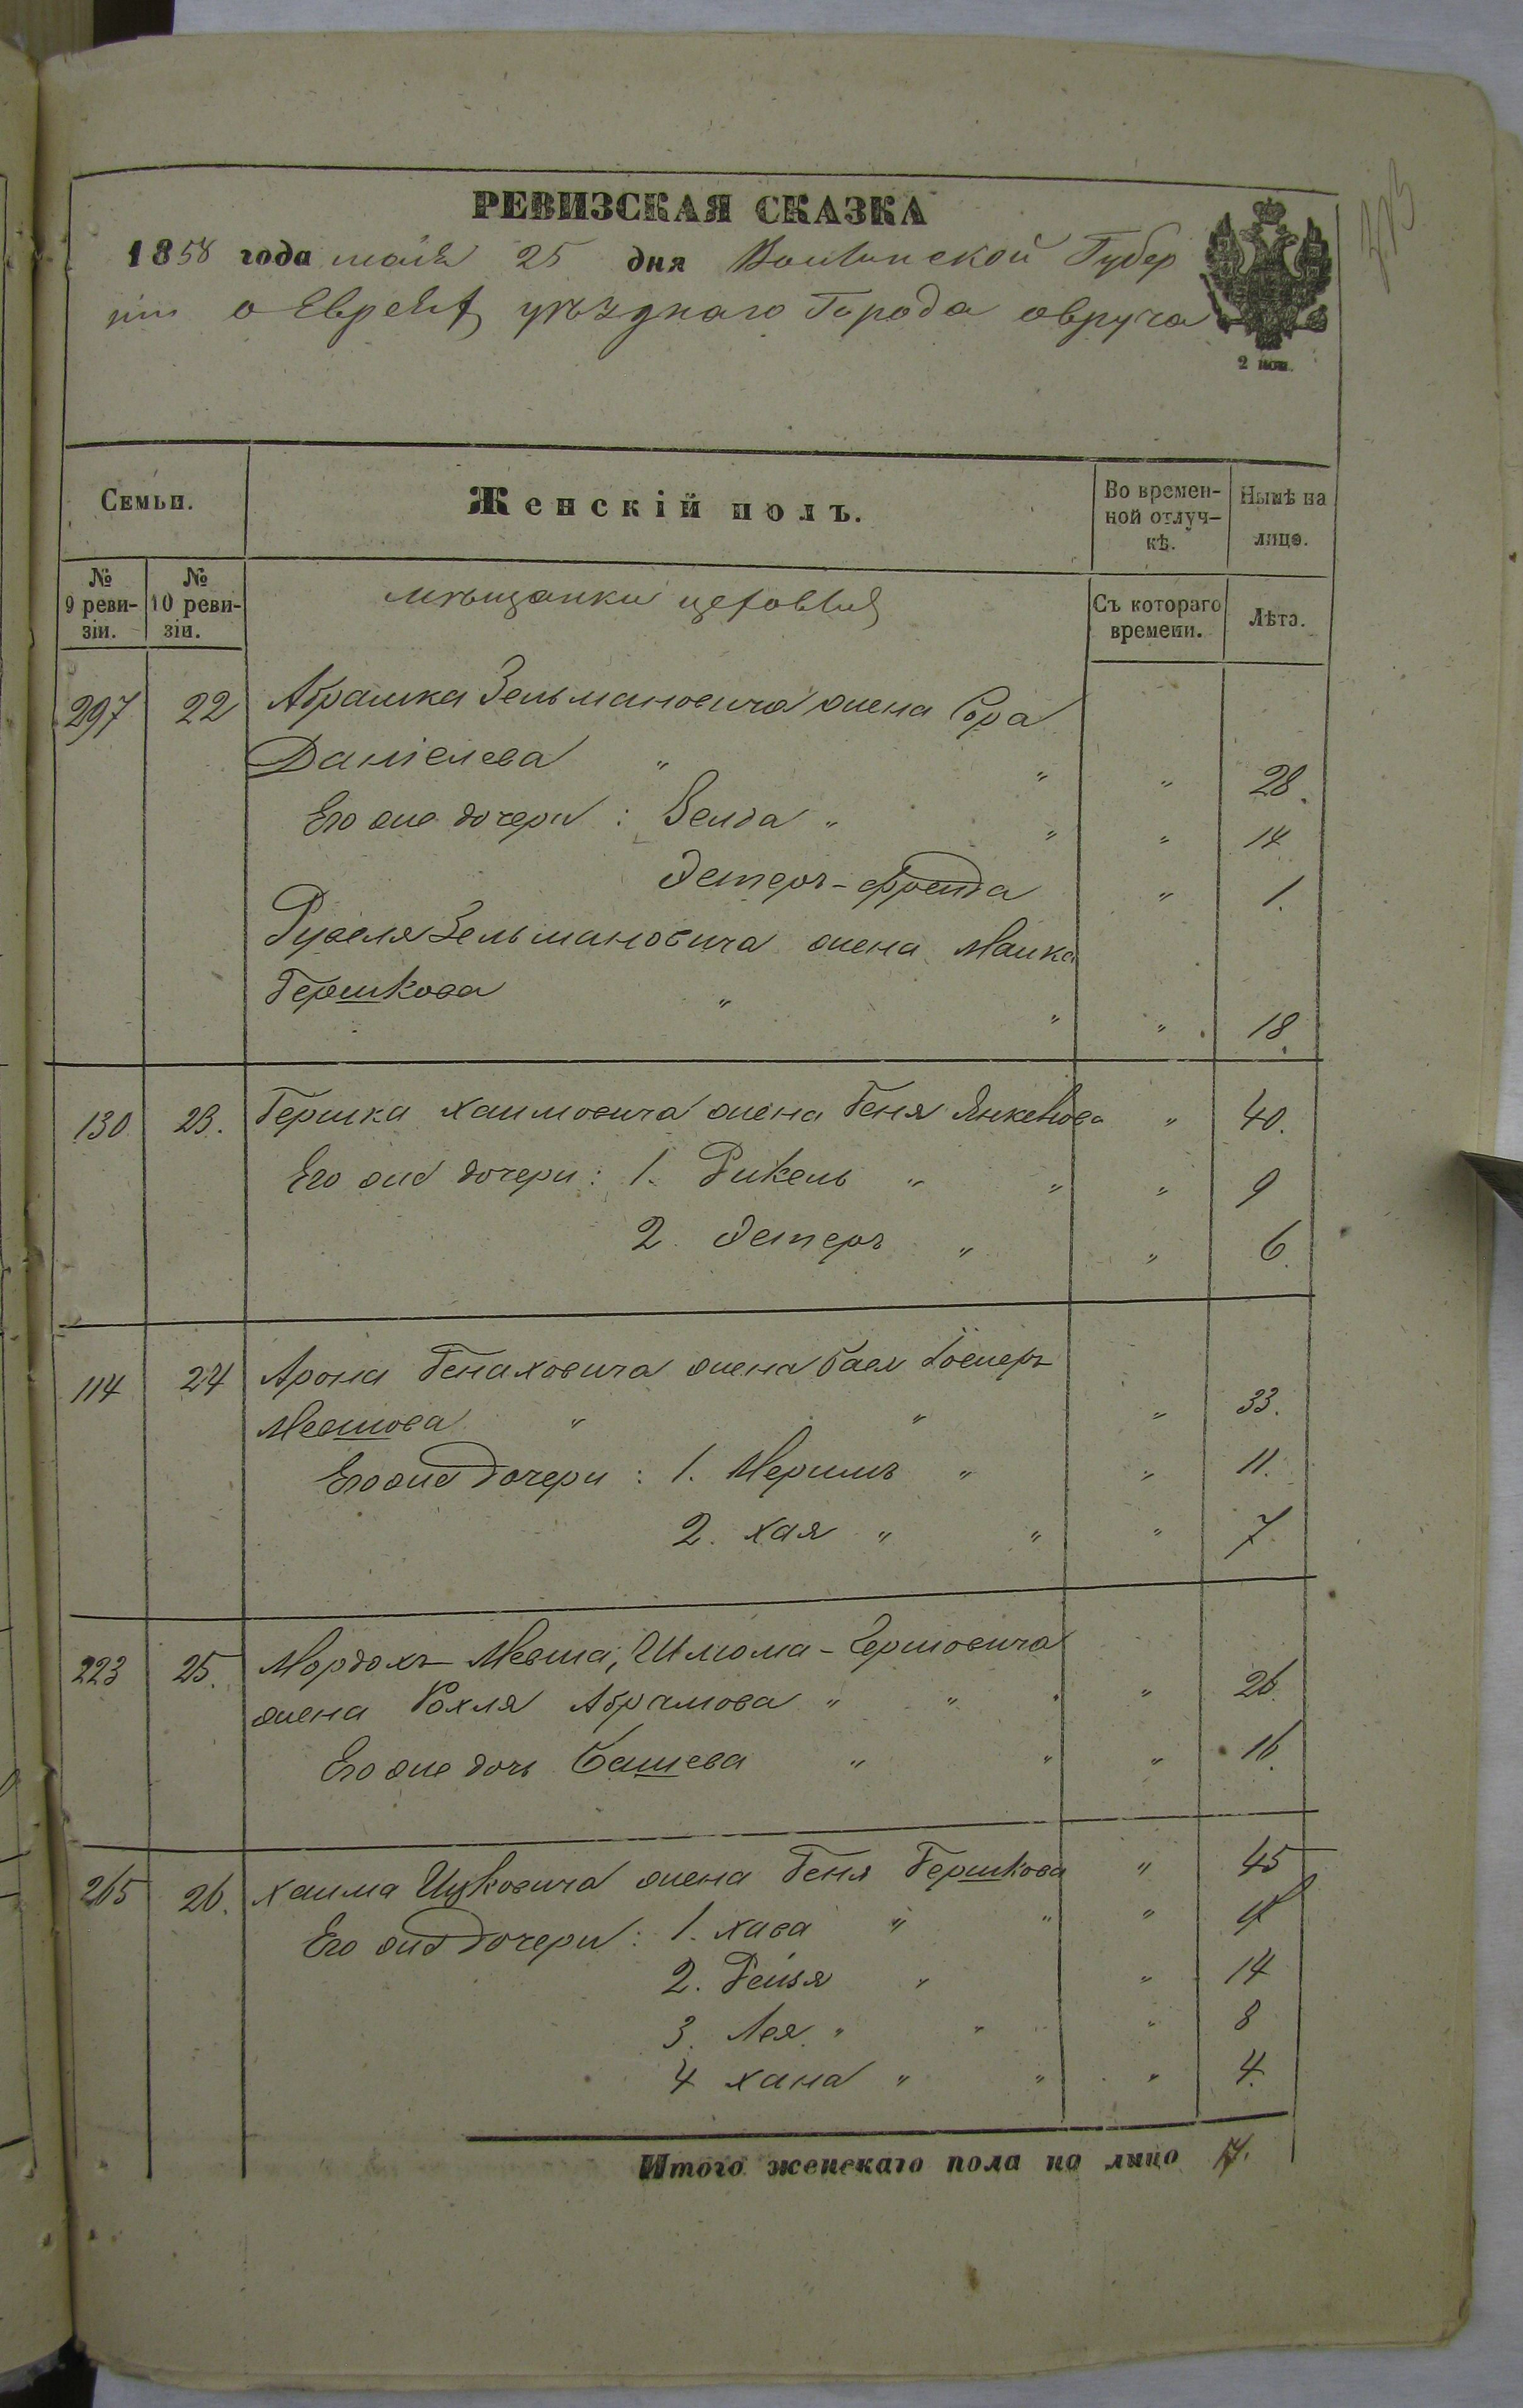 РЕВИЗСКАЯ СКАЗКА
1858 года мая 25 дня Волынской Губер
ніи о Евреяхъ уѣзднаго Города овруча
2 коп.
Семьи.
Женскій полъ.
Во времен-
ной отлуч-
кѣ.
Нынѣ на
лицо.
№
9 реви-
зіи.
№
10 реви-
зіи.
мѣщанки цеховыя
Съ котораго
времени.
Лѣта.
297 22 Абрамка Зельмановича жена Сора
Даніелева " " " 28.
Его же дочери: Зельда " " " 14
Эстеръ-Фрейда " 1.
Зельмановича жена Малка
Гершкова " " " 18.
130 23. Гершка Хаимовича жена Геня Янкелева " 40.
Его же дочери: 1. Рикель " " " 9
2. Эстеръ " " 6.
114 24 Арона Генаховича жена
Мевшова " " " 33.
Его же дочери: 1. Меримъ " " 11.
2. хая " " " 7.
223 25. Мордохъ-Мевша, Шлюма-Гершовича
жена Рохля Абрамова " " " 26.
Его же дочь Башева " " " 16.
265 26. Хаима Ицковича жена Геня Гершкова " 45
Его же дочери: 1. хава " " "
2. Рейзя " " 14
3. Лея " " " 8
4 хана " " " 4.
Итого женскаго пола на лицо 17.